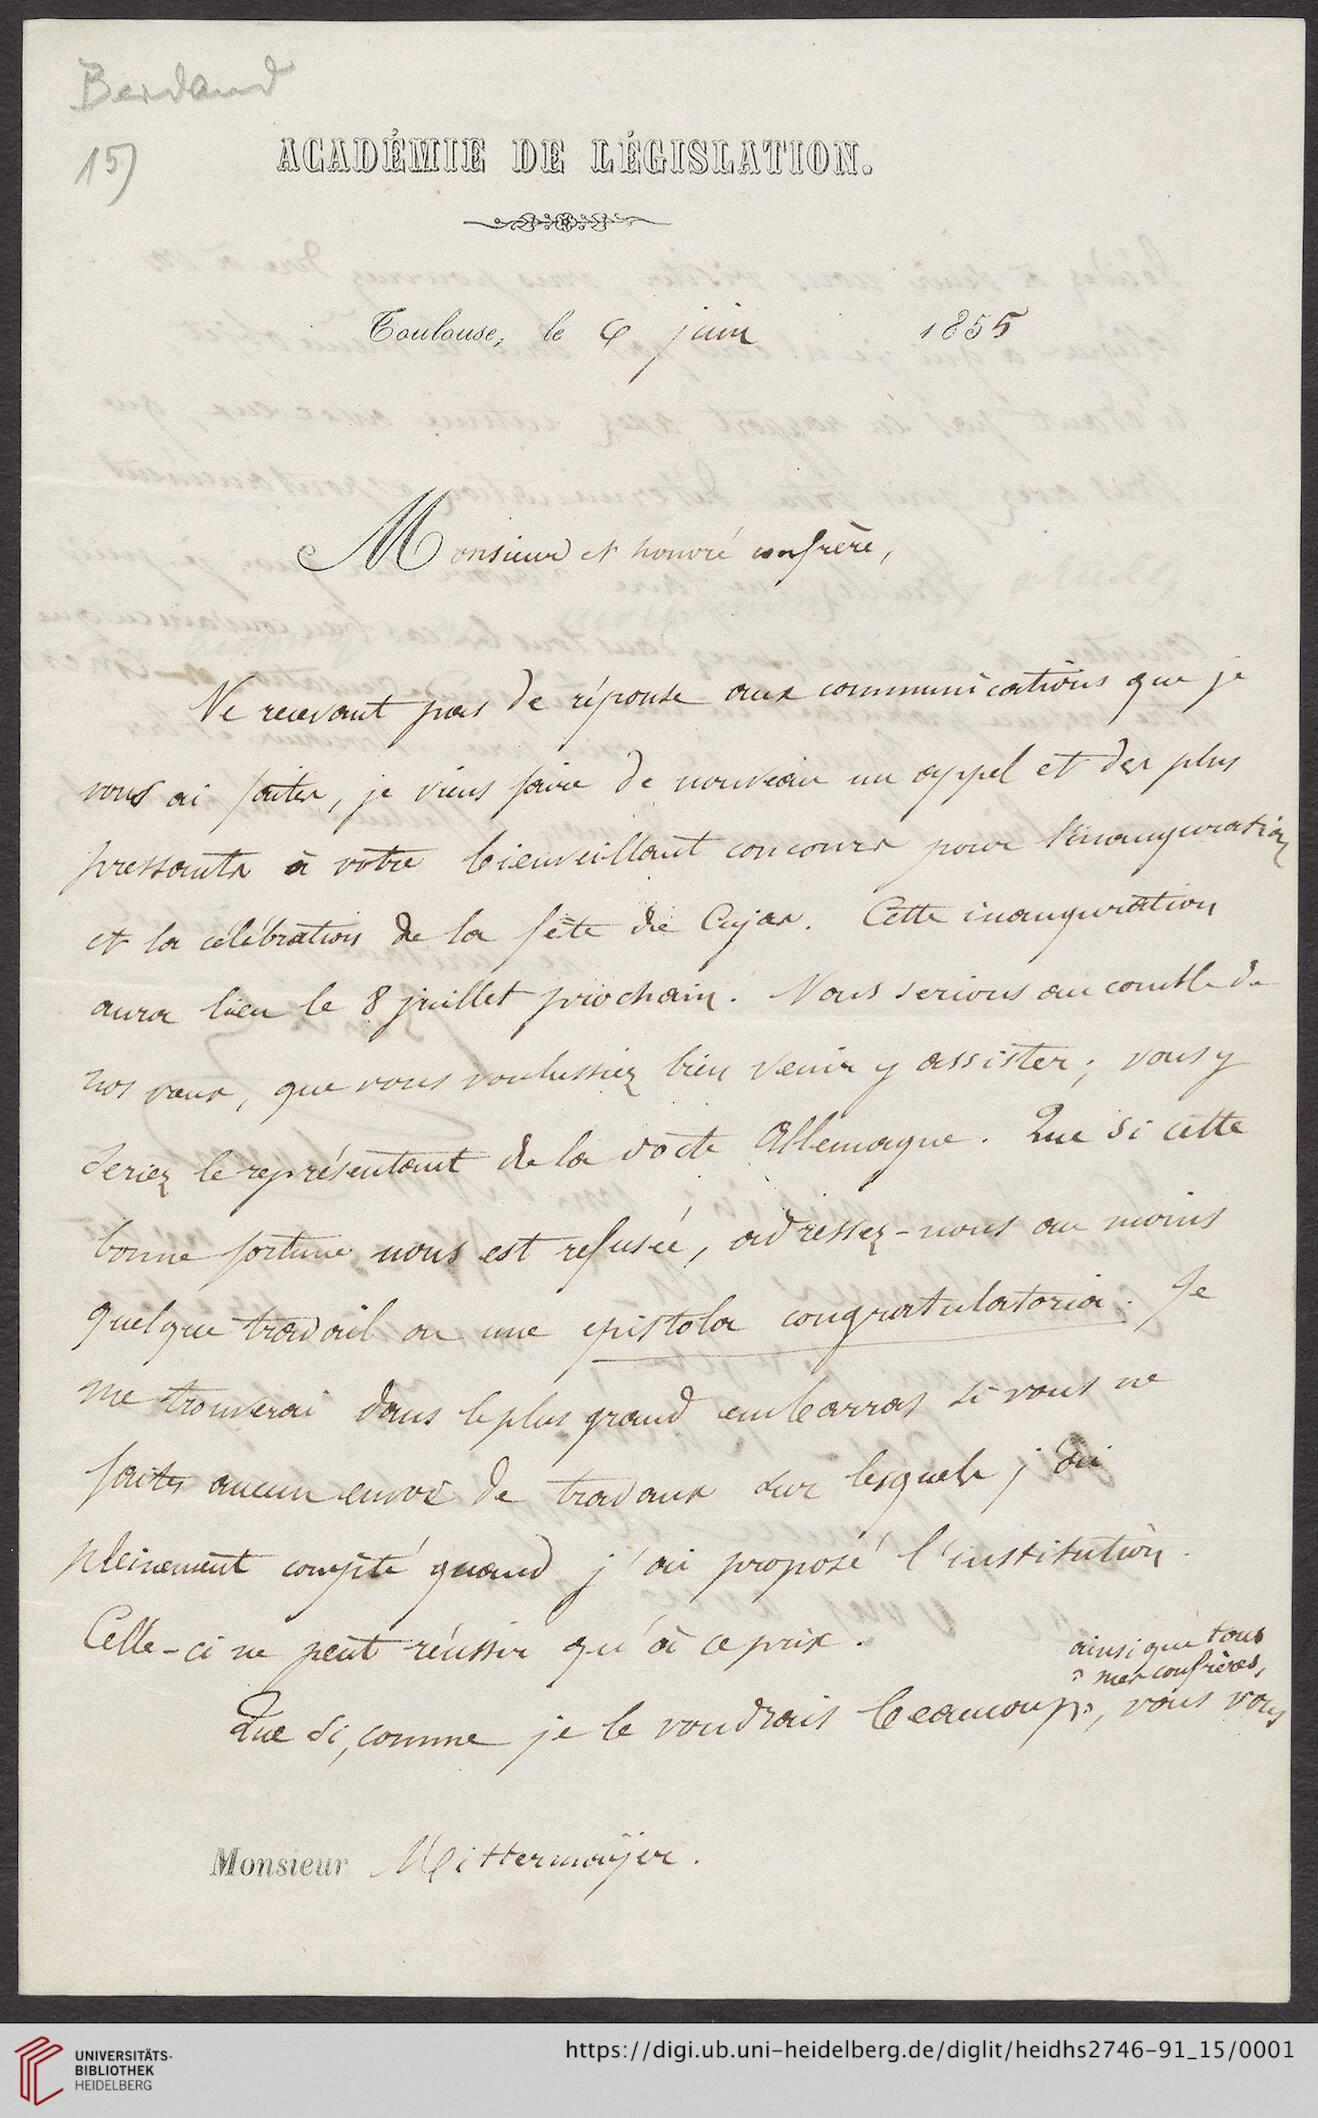 Berdaud
15)
ACADÉMIE DE LÉGISLATION.
Toulouse, le 6 juin 1855
Monsieur et honoré confrère,
Ne recevant pas de réponse aux communications que je
vous ai faites, je viens faire de nouveau un appel et des plus
pressants à votre bienveillant concours pour l'inauguration
et la célébration de la fête de Cujas. Cette inauguration
aura lieu le 8 juillet prochain. Nous serions au comble de
nos vœux, que vous voulussiez bien venir y assister; vous y
seriez le représentant de la docte Allemagne. Que si cette
bonne fortune nous est refusée, adressez-nous au moins
quelque travail ou une epistola congratulatoria. Je
me trouverai dans le plus grand embarras si vous ne
faites aucun envoi de travaux sur lesquels j'ai
pleinement compté quand j'ai proposé l'institution.
Celle-ci ne peut réussir qu'à ce prix.
ainsi que tous
mes confrères,
Que si, comme je le voudrais beaucoup, vous vous
Monsieur Mittermaijer.
UNIVERSITÄTS-
BIBLIOTHEK
HEIDELBERG
https://digi.ub.uni-heidelberg.de/diglit/heidhs2746-91_15/0001